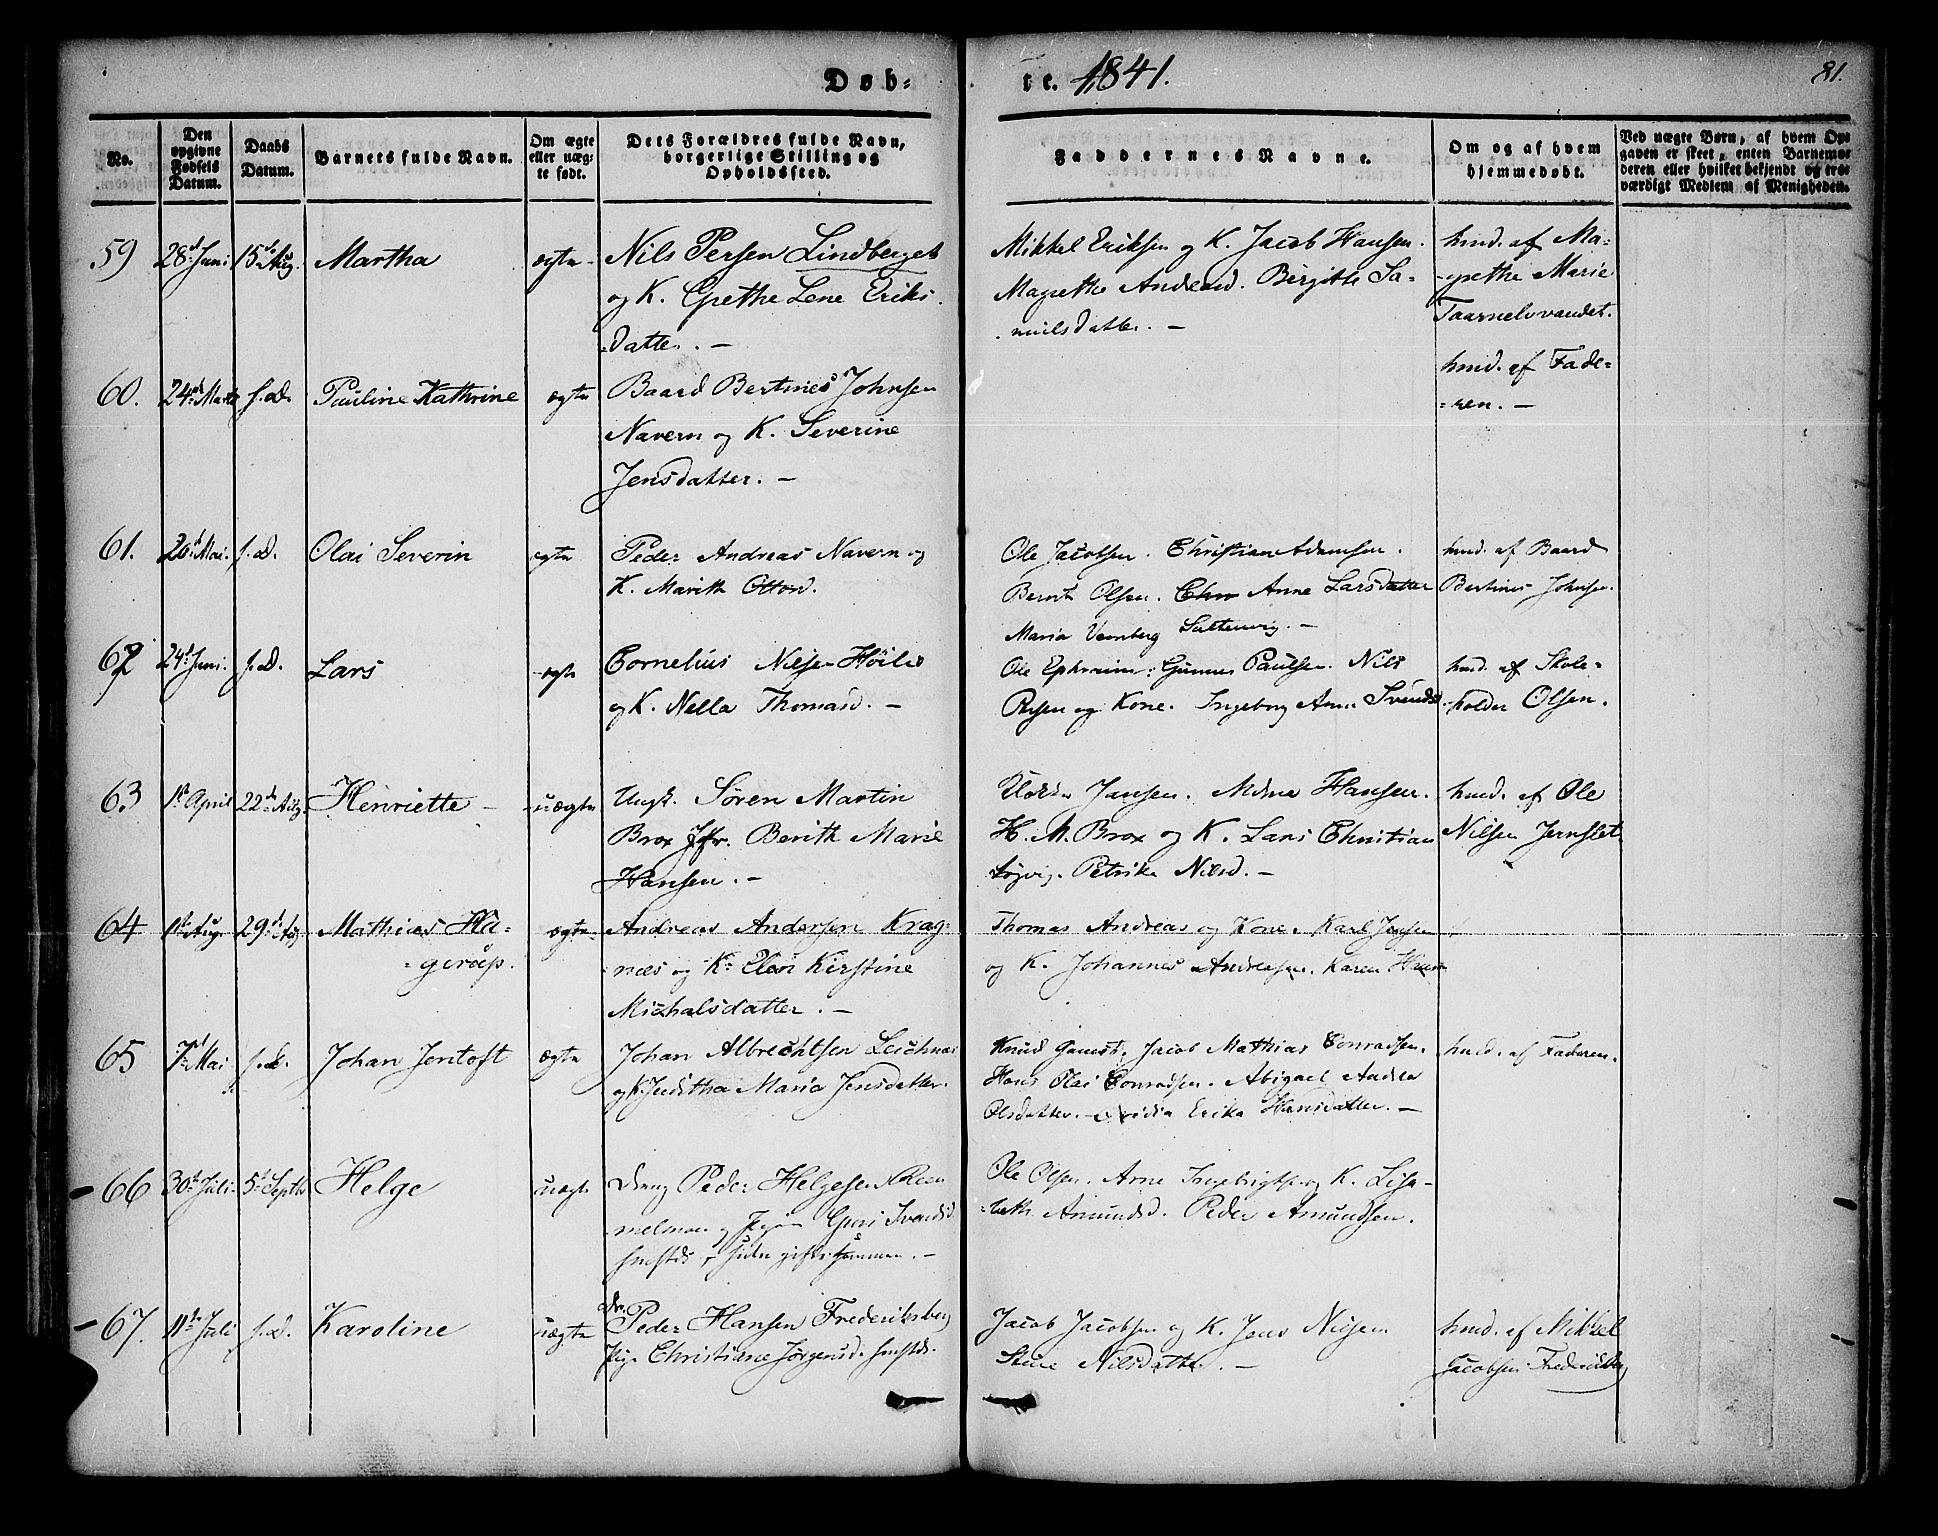 Døb- te. 1841. 81.
No.
Den opgivne Fødsels Datum.
Daabs Datum.
Barnets fulde Navn.
Om ægte eller uægte født.
Dets Forældres fulde Navn, borgerlige Stilling og Opholdssted.
Faddernes Navne.
Om og af hvem hjemmedøbt.
Ved uægte Børn, af hvem Opgaven er skeet, enten Barnemoderen eller hvilket bekjendt og troværdigt Medlem af Menigheden.
59 28d Juni 15de Aug. Martha ægte Nils Persen Lindberget
og K. Grethe Lene Eriks-
datter. —
Mikkel Eriksen og K. Jacob Hansen.
Magrethe Andersd. Birgitte Sa-
muelsdatter. —
hmd. af Ma-
grethe Marie
Taarnelvvandet.
60. 24de Marts s.D. Pauline Kathrine ægte Baard Bertines Johnsen
Navern og K. Severine
Jensdatter. —
hmd. af Fade-
ren. —
61. 20d Mai. s.D. Olai Severin ægte Peder Andreas Navern og
K. Marith Ottosd.
Ole Jacobsen. Christian Adamsen.
Bernt Olsen. Chr Anne Larsdatter
Maria Vemberg
hmd. af Baard
Bertines Johnsen.
62 24d Juni. s.D. Lars ægte Cornelius Nilsen
og K. Nella Thomasd. —
Ole Ephraim. Gunner Paulsen. Nils
Persen og Kone. Ingeborg Anne Svendsd.
hmd. af Skole-
holder Olsen.
63 1st April 22de Aug. Henriette — uægte Ungk. Søren Martin
Brox Jfr. Berith Marie
Hansen. —
Jansen. Hansen.
H. M. Brox og K. Lars Christian
Petrika Nilsd. —
hmd. af Ole
Nilsen Jernslet
64 1st Aug. 29d Aug. Mathias Ha-
gerup. ægte Andreas Andersen Krag-
næs og K. Elen Kirstine
Michalsdatter. —
Thomas Andreas og Kone. Karl Jensen
og K. Johannes Andreasen. Karen
65 7d Mai s.d. Johan Jentoft ægte Johan Albrechtsen Leichnæs
og K. Juditha Maria Jensdatter.
Knud Jacob Mathias Conradsen.
Hans Olai Conradsen. Abigael Andrea
Olsdatter. — Erika Hansdatter. —
hmd. af Faderen.
66 30te Juli 5d Septb Helge uægte Dreng Peder Helgesen
og Pigen Guri Svendsd
siden gifte sammen. —
Ole Olsen. Arne Ingebrigts. og K. Lisa-
beth Amundsd. Peder Amundsen.
67. 11te Juli s.d. Karoline uægte Dr. Peder Hansen Frederiksberg
Pige Christiane Jørgensd.
Jacob Jacobsen og K. Jens Nilsen
Nilsdatter. —
hmd. af Mikkel
Jacobsen Frederiksberg